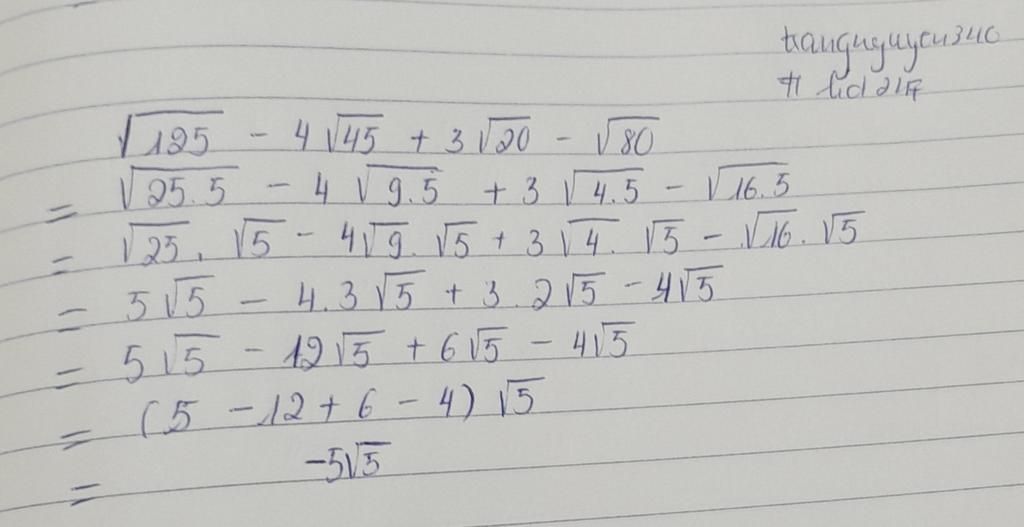 trangnguyen340
√125 - 4√45 + 3√20 - √80
= √25.5 - 4√9.5 + 3√4.5 - √16.5
= √25.√5 - 4√9.√5 + 3√4.√5 - √16.√5
= 5√5 - 4.3√5 + 3.2√5 - 4√5
= 5√5 - 12√5 + 6√5 - 4√5
= (5 - 12 + 6 - 4)√5
= -5√5